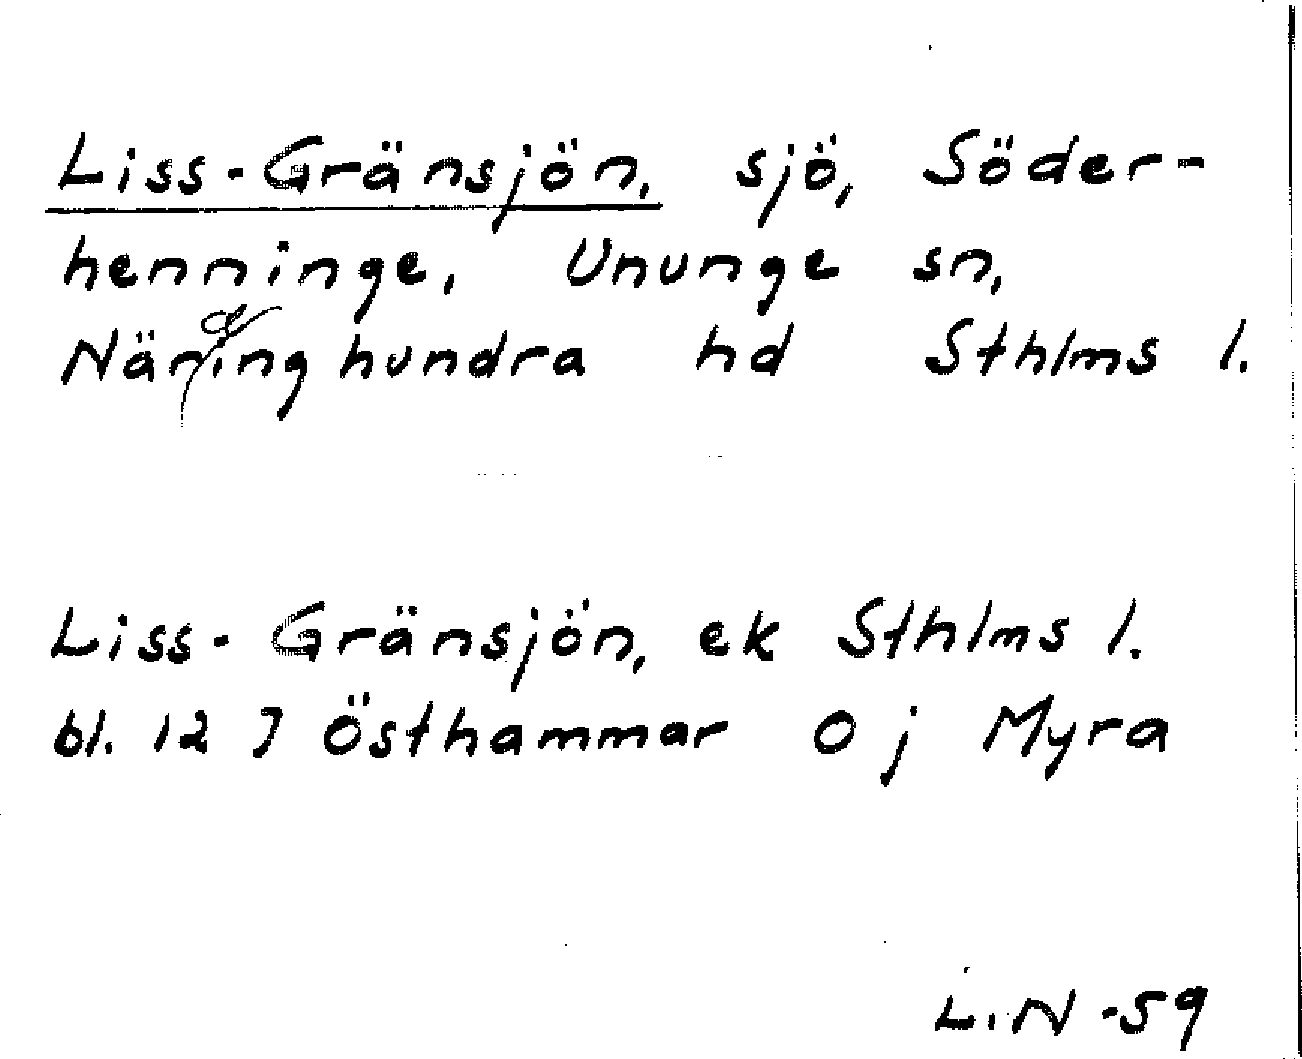 Liss-Gränsjön, sjö, Söder-
henninge, Ununge sn,
Närdinghundra hd Sthlms l.
Liss-Gränsjön, ek Sthlms l.
bl. 12 J Östhammar O j Myra
L.N -59